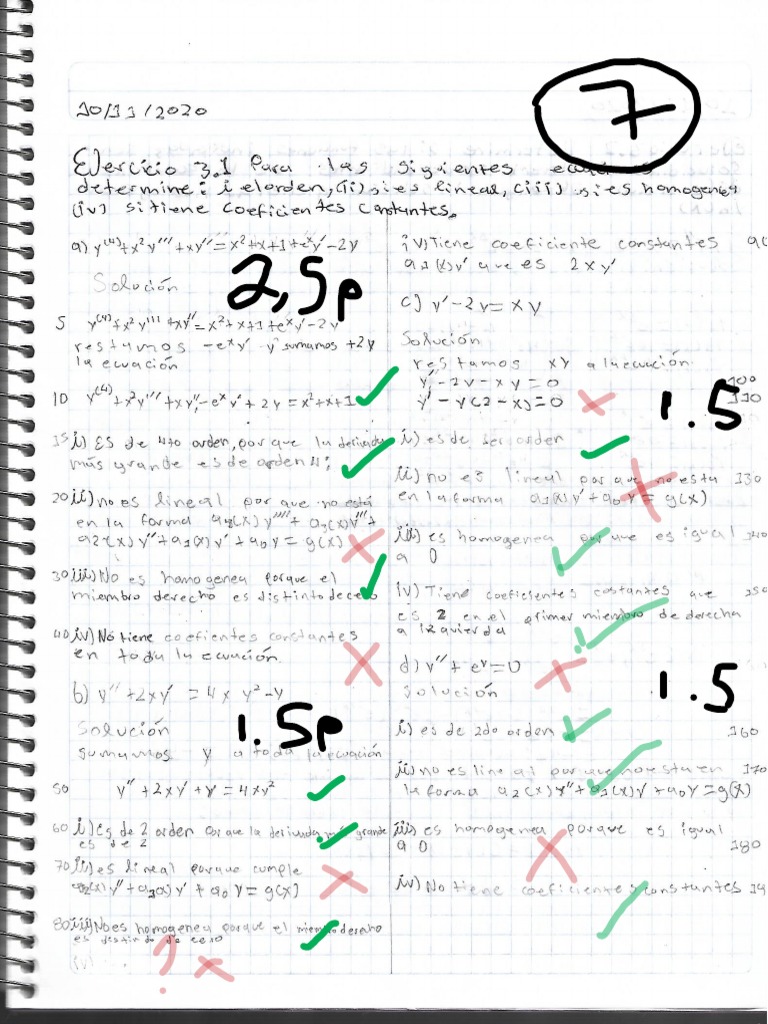 10/11/2020
7
Ejercicio 3.1 Para las siguientes
determine: i elorden, (ii) si es lineal, (iii) si es homogenea
(iv) si tiene coeficientes constantes.
a) y⁽⁴⁾+x²y'''+xy''=x²+x+1+eˣy'-2y
2,5p
Solución
5 y⁽⁴⁾+x²y'''+xy''=x²+x+1+eˣy'-2y
restamos -eˣy' y sumamos +2y
la ecuación
10 y⁽⁴⁾+x²y'''+xy''-eˣy'+2y=x²+x+1
15 i) Es de 4to orden, por que la derivada
más grande es de orden 4;
20 ii) no es lineal por que no está
en la forma a₄(x)y''''+a₃(x)y'''+
a₂(x)y''+a₁(x)y'+a₀y=g(x)
30 iii) No es homogenea porque el
miembro derecho es distinto de cero
40 iv) No tiene coefientes constantes
en toda la ecuación.
b) y''+2xy'=4xy²-y
1.5p
Solución
sumamos y a toda la ecuación
50 y''+2xy'+y=4xy²
60 i) Es de 2 orden por que la derivada más grande
es de 2
70 ii) es lineal porque cumple
a₂(x)y''+a₁(x)y'+a₀y=g(x)
80 iii) No es homogenea porque el miembro derecho
es distinto de cero
(iv)
?
iv) Tiene coeficiente constantes
a₁(x)y' que es 2xy'
c) y'-2y=xy
Solución
restamos xy a la ecuación.
y'-2y-xy=0 100
y'-y(2-x)=0 110
1.5
i) es de 1er orden
ii) no es lineal por que no esta 130
en la forma a₁(x)y'+a₀y=g(x)
iii) es homogenea por que es igual 140
a 0
iv) Tiene coeficientes costantes que 150
es 2 en el primer miembro de derecha
a izquierda
d) y''+eʸ=0
1.5
solución
i) es de 2do orden 160
ii) no es lineal por que no esta en 170
la forma a₂(x)y''+a₁(x)y'+a₀y=g(x)
iii) es homogenea porque es igual
a 0 180
iv) No tiene coeficientes constantes 19